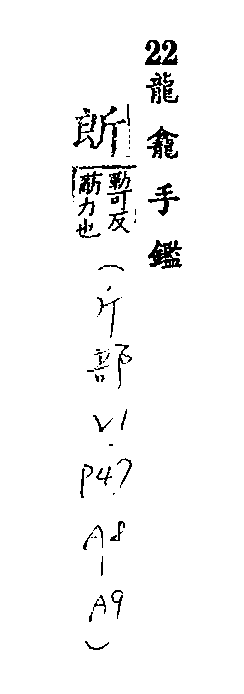 22龍龕手鑑
可反
力也
(斤部 V1. P47. A8 A9)